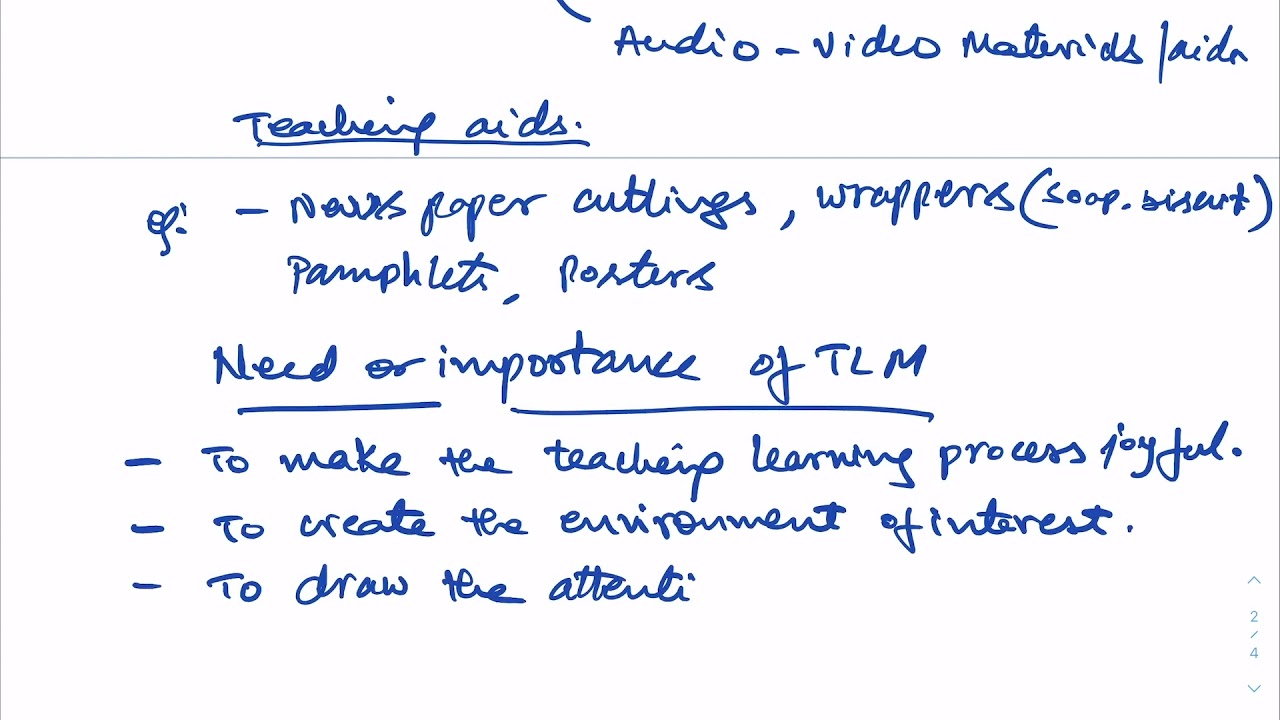 Audio - Video Materials/aids
Teaching aids.
eg: - News paper cuttings, wrappers (soap. biscuit)
Pamphlets, Posters
Need or importance of TLM
- To make the teaching learning process joyful.
- To create the environment of interest.
- To draw the attenti
2
/
4